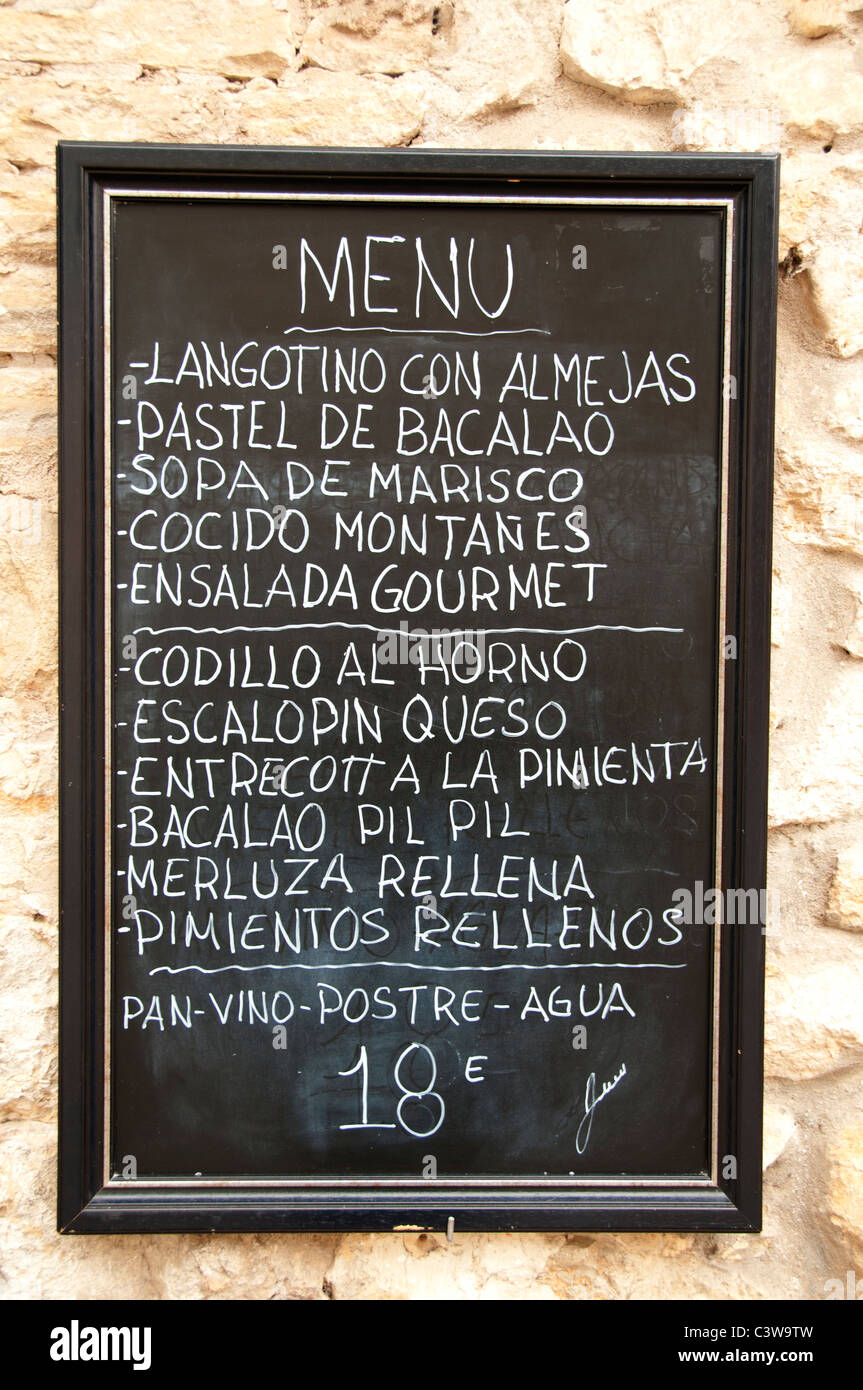 MENU
-LANGOTINO CON ALMEJAS
-PASTEL DE BACALAO
-SOPA DE MARISCO
-COCIDO MONTAÑES
-ENSALADA GOURMET
-CODILLO AL HORNO
-ESCALOPIN QUESO
-ENTRECOTT A LA PIMIENTA
-BACALAO PIL PIL
-MERLUZA RELLENA
-PIMIENTOS RELLENOS
PAN-VINO-POSTRE-AGUA
18 E
alamy
Image ID: C3W9TW
www.alamy.com